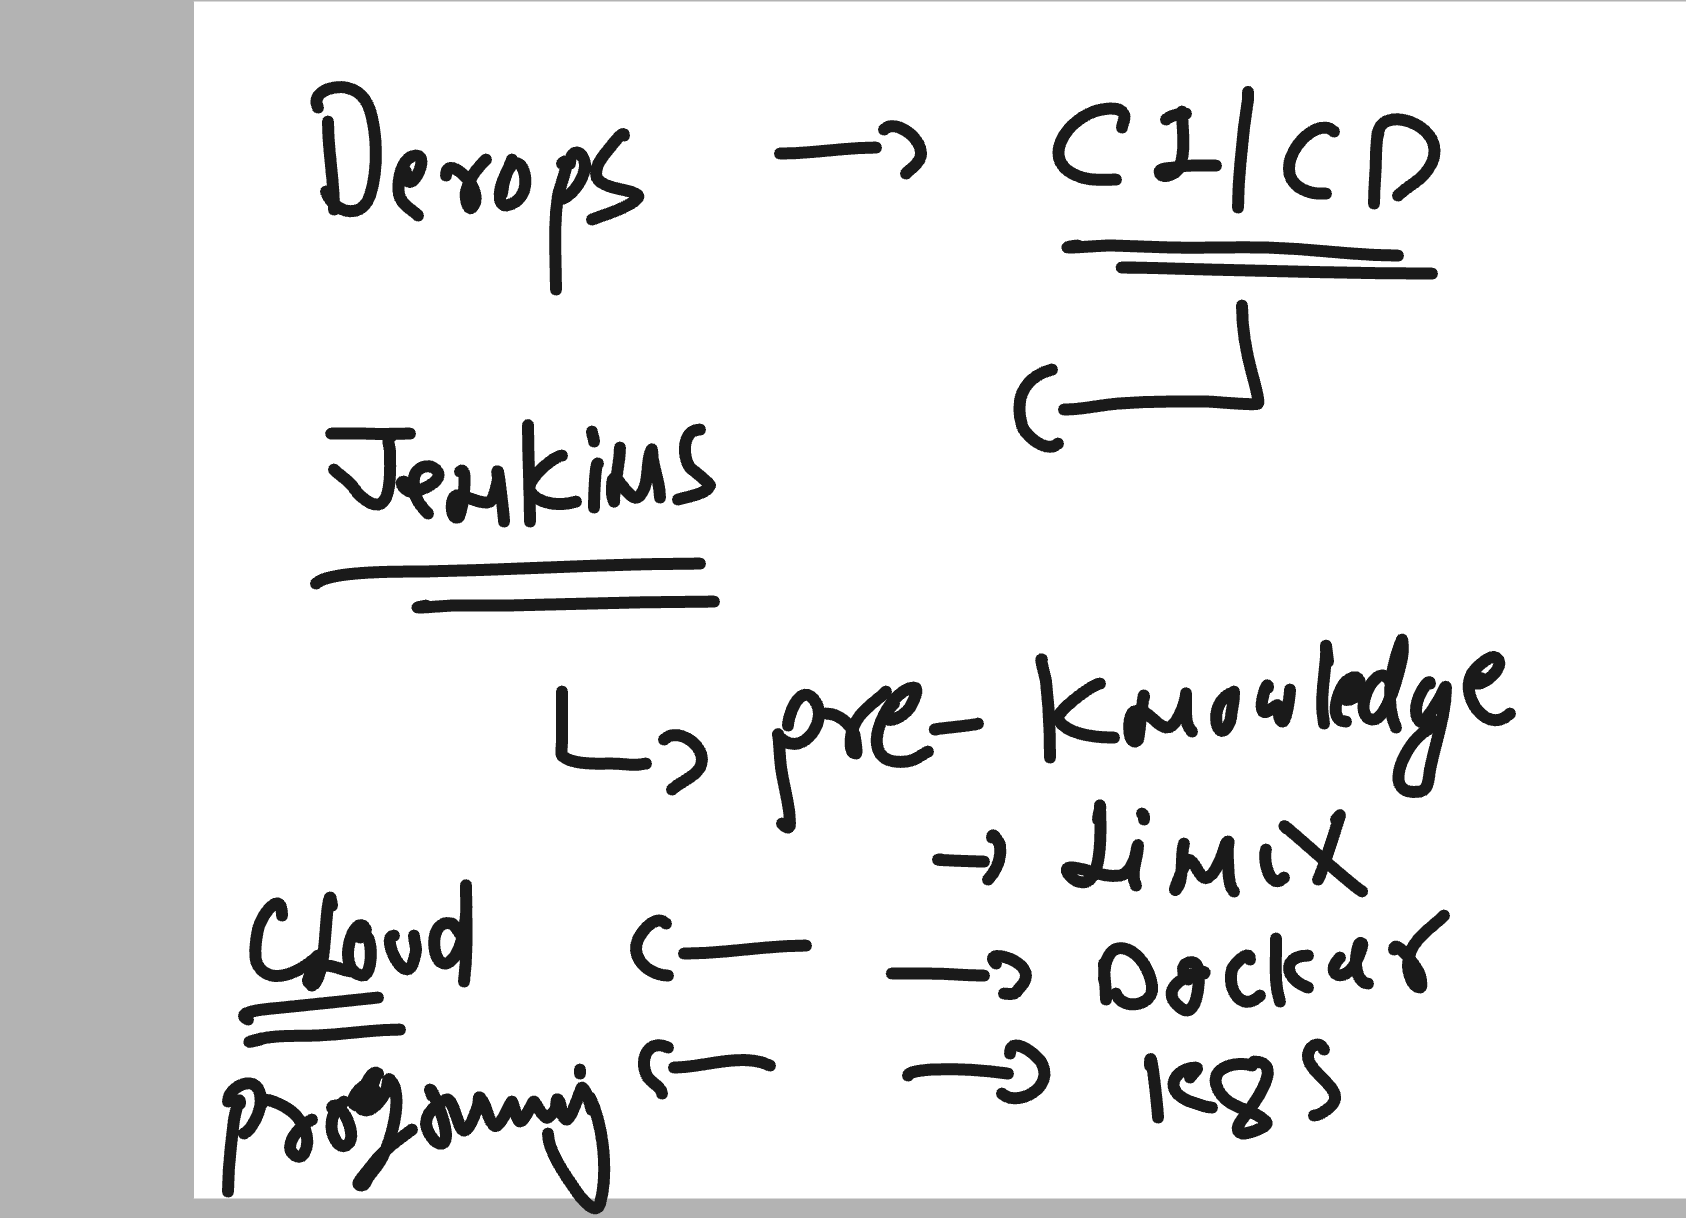 Devops → CI/CD
Jenkins
↳ pre- Knowledge
→ Linux
Cloud ← → Docker
programing ← → K8S